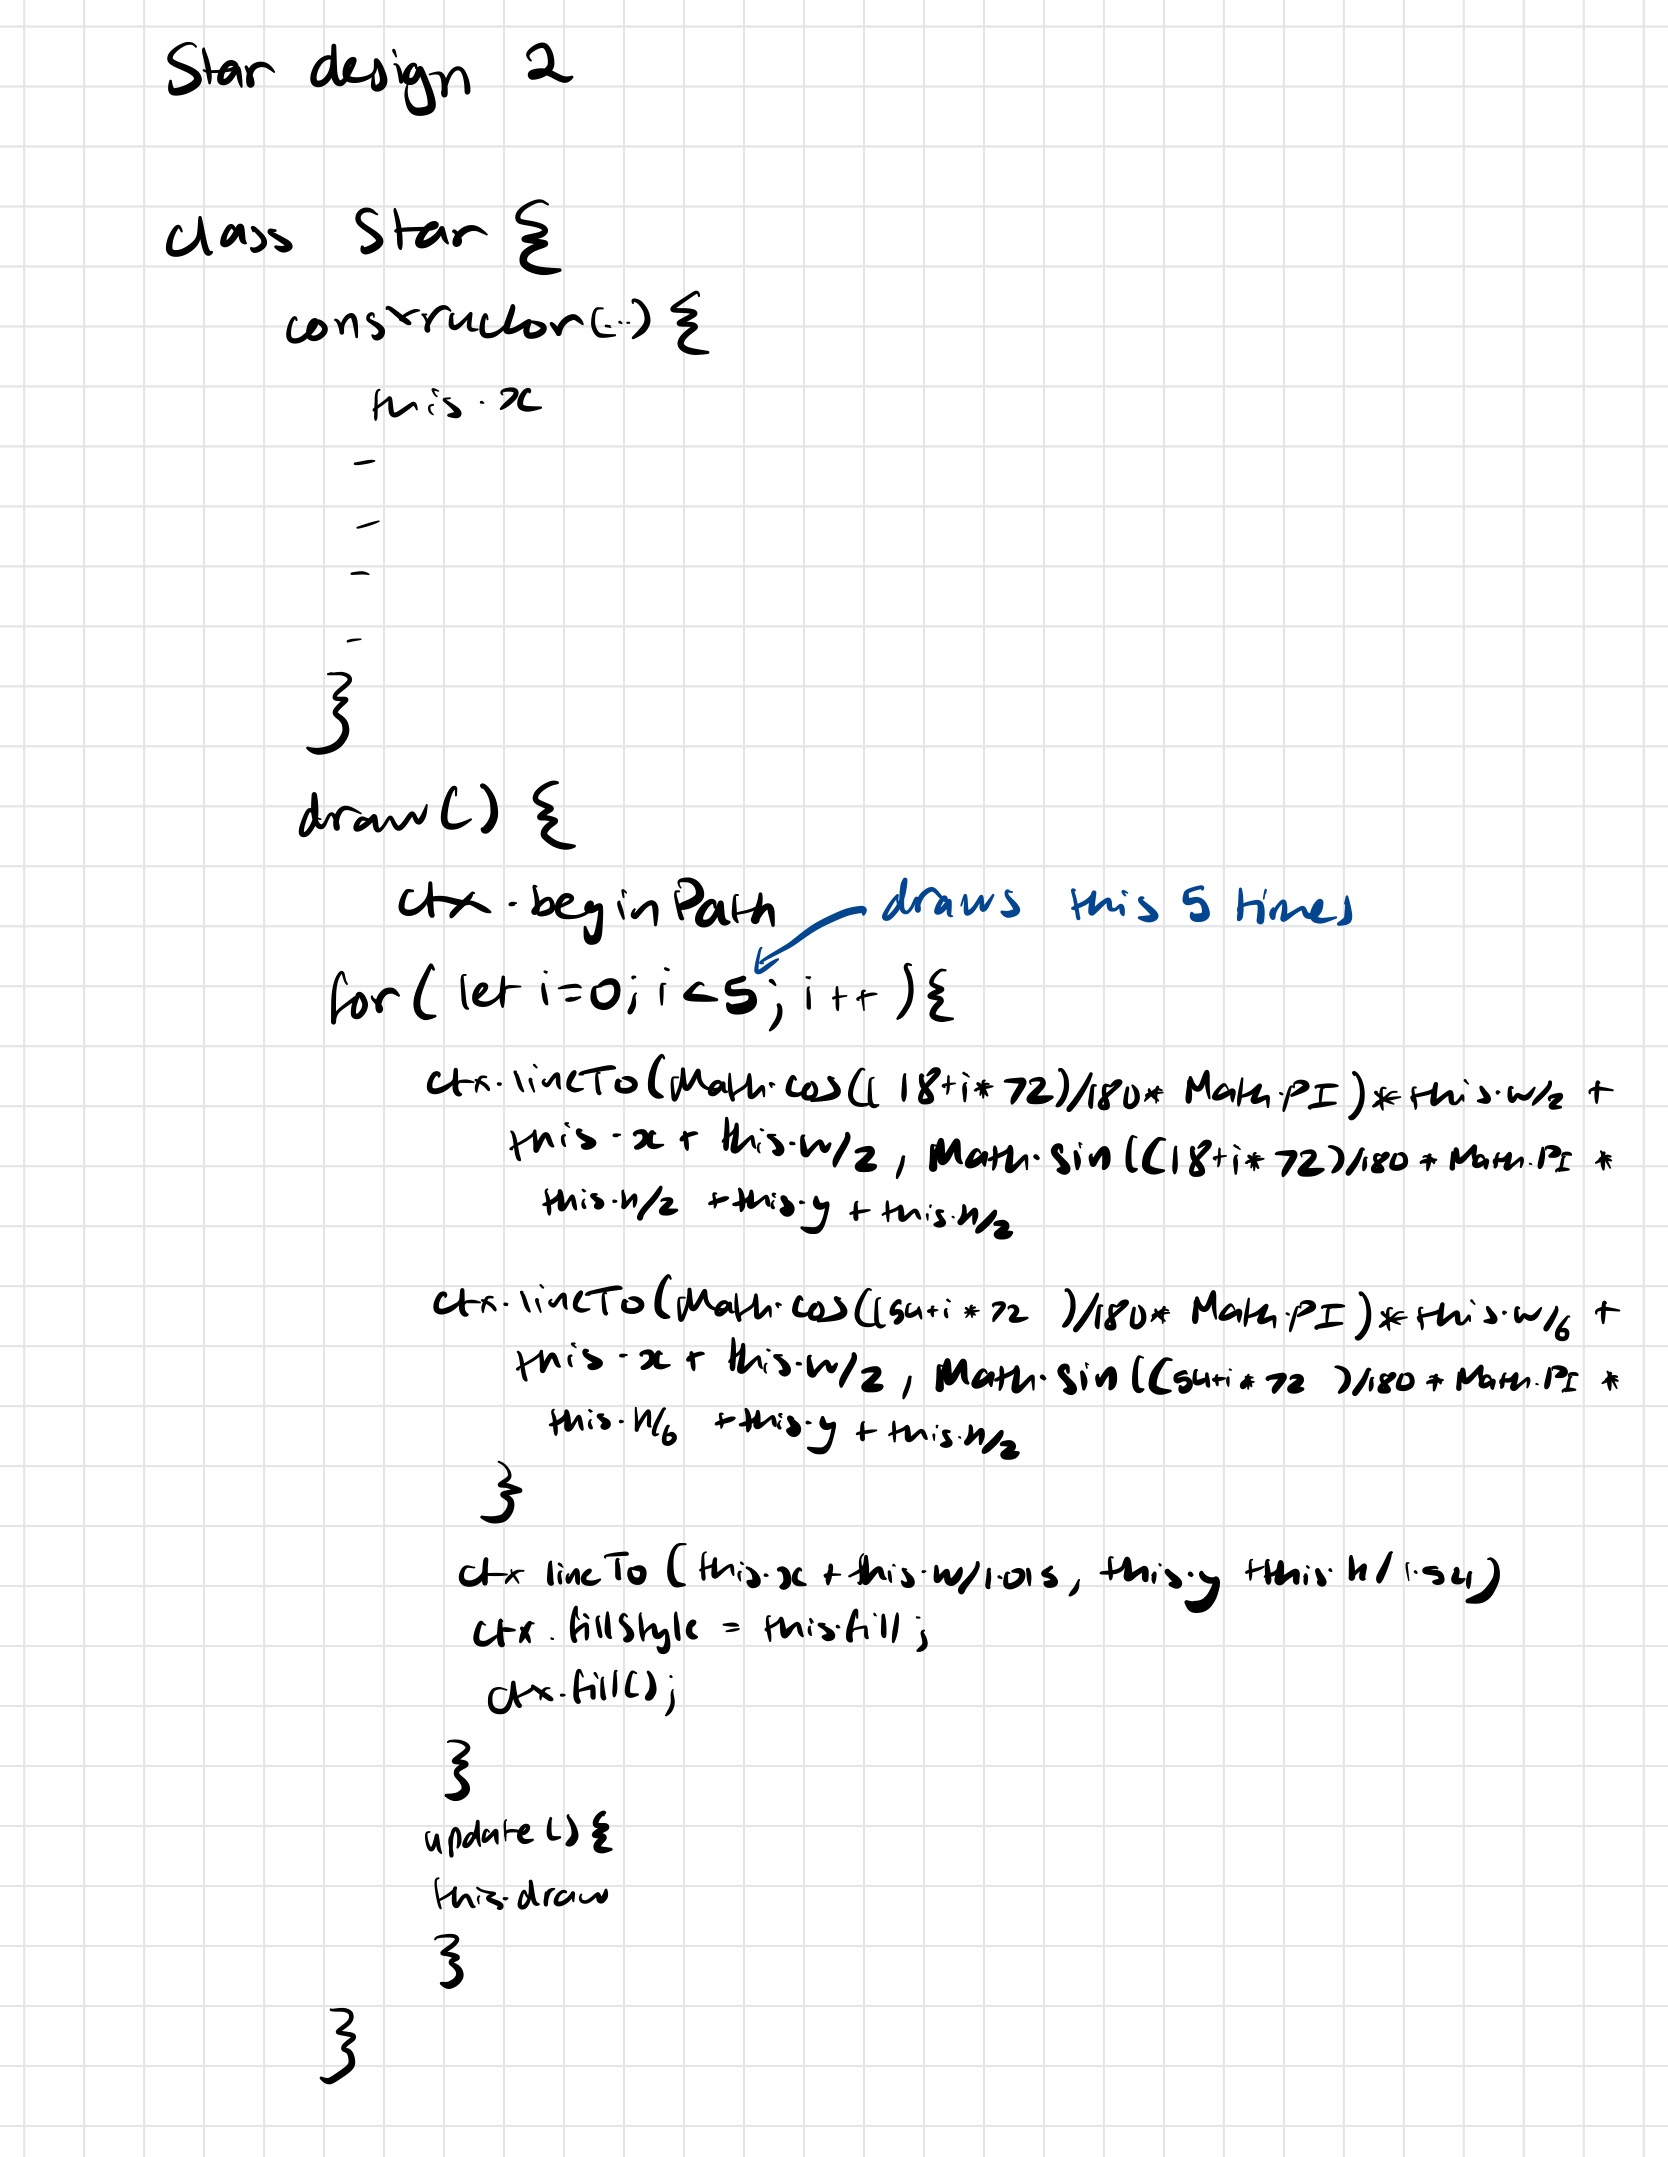 Star design 2
class Star {
constructor(...) {
this.x
-
-
-
-
}
draw() {
ctx.beginPath
draws this 5 times
for( let i=0; i<5; i++ ){
ctx.lineTo(Math.cos(( 18+i* 72)/180* Math.PI )* this.w/2 +
this.x + this.w/2 , Math.sin((18+i* 72)/180 * Math.PI *
this.h/2 +this.y + this.h/2
ctx.lineTo(Math.cos((54+i * 72 )/180* Math.PI )* this.w/6 +
this.x + this.w/2 , Math.sin((54+i * 72 )/180 * Math.PI *
this.h/6 +this.y + this.h/2
}
ctx lineTo ( this.x + this.w/1.015, this.y +this.h/1.54)
ctx.fillStyle = this.fill;
ctx.fill();
}
update() {
this.draw
}
}